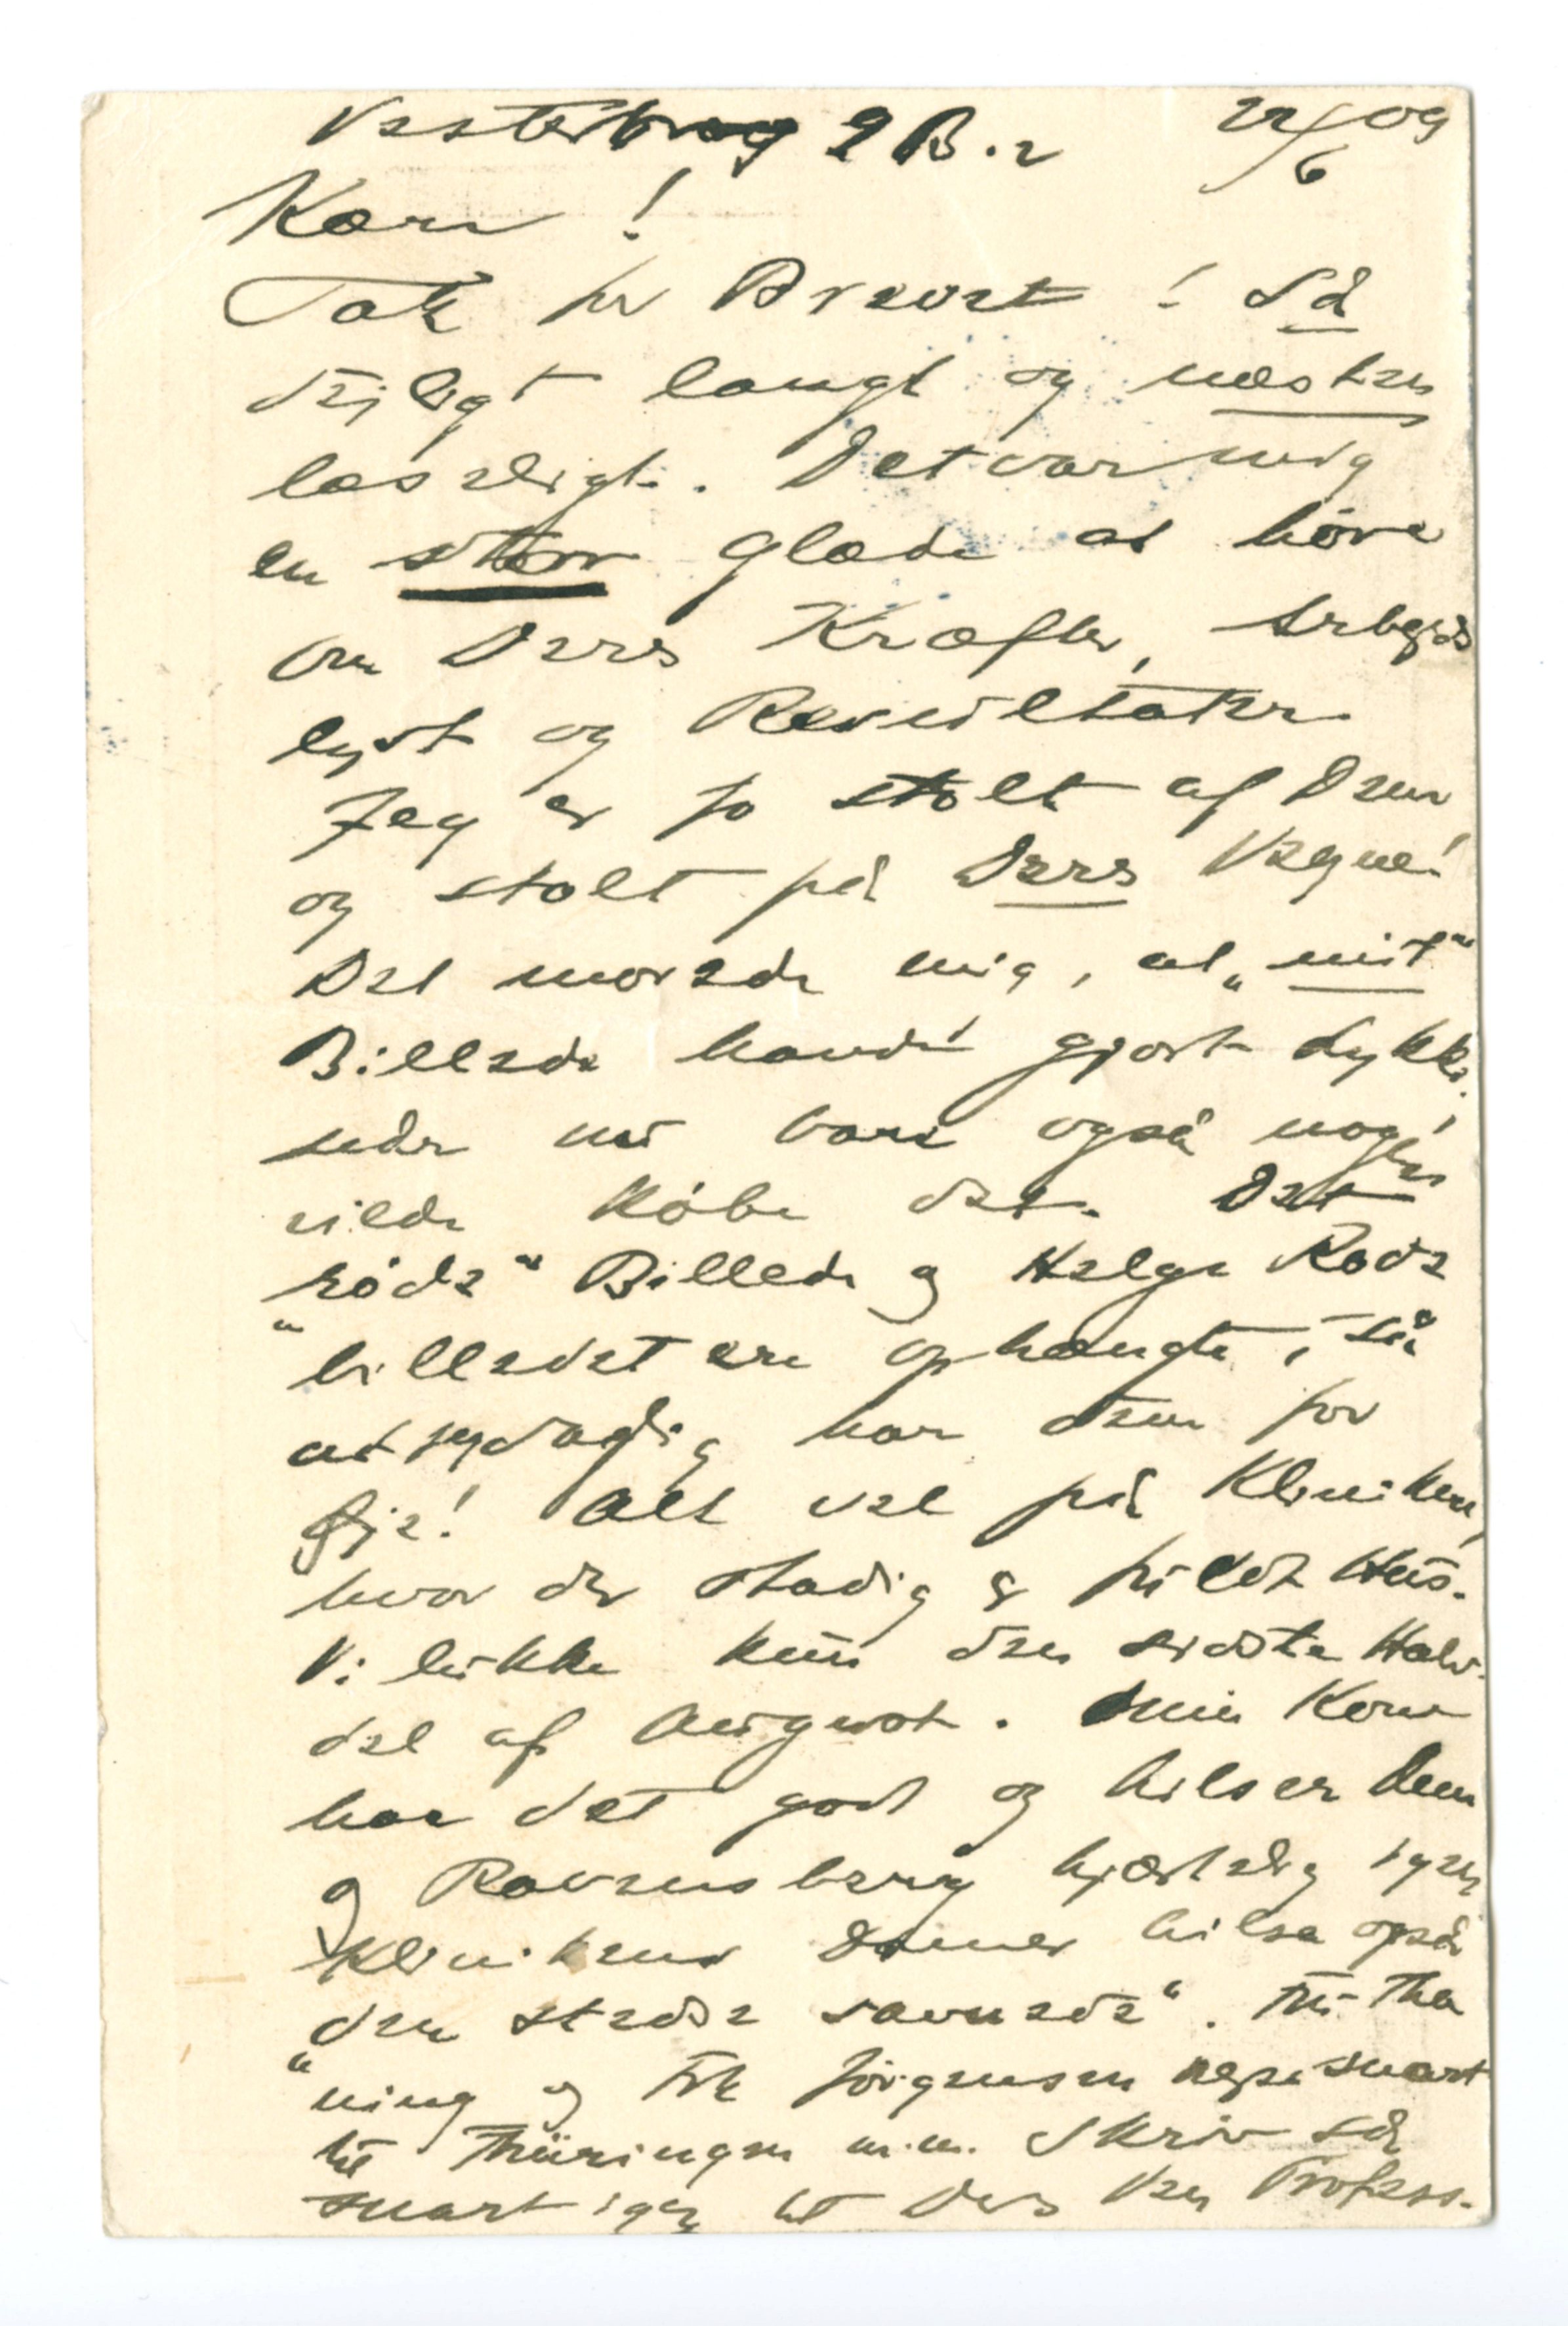 Vesterbrog 9 B.2 22/6 09
Kære!
Tak for Brevet! Så
dejligt langt og næsten
læseligt. Det var mig
en stor Glæde at höre
om Deres Kræfter, Arbejds
lyst og Resultater.
Jeg er jo stolt af Dem
og stolt på Deres Vegne!
Det morede mig, at „mit“
Billede havde gjort Lykke,
nu bare også nogen
vilde köbe det. Det
„röde“ Billede og Helge Rode
billedet ere ophængte, så
at jeg daglig har dem for
Øje! Alt vel på Kliniken,
hvor der stadig er fuldt Hus.
Vi lukke kun den sidste Halv-
del af August. Min Kone
har det godt og hilser Dem
og Ravensberg hjærtelig igen
Klinikens Damer hilse også
„den stedse savnede“. Frk
ning og Frk Jörgensen rejse snart
til Thüringen m.m. Skriv så
snart igen til Deres Ven Profess.